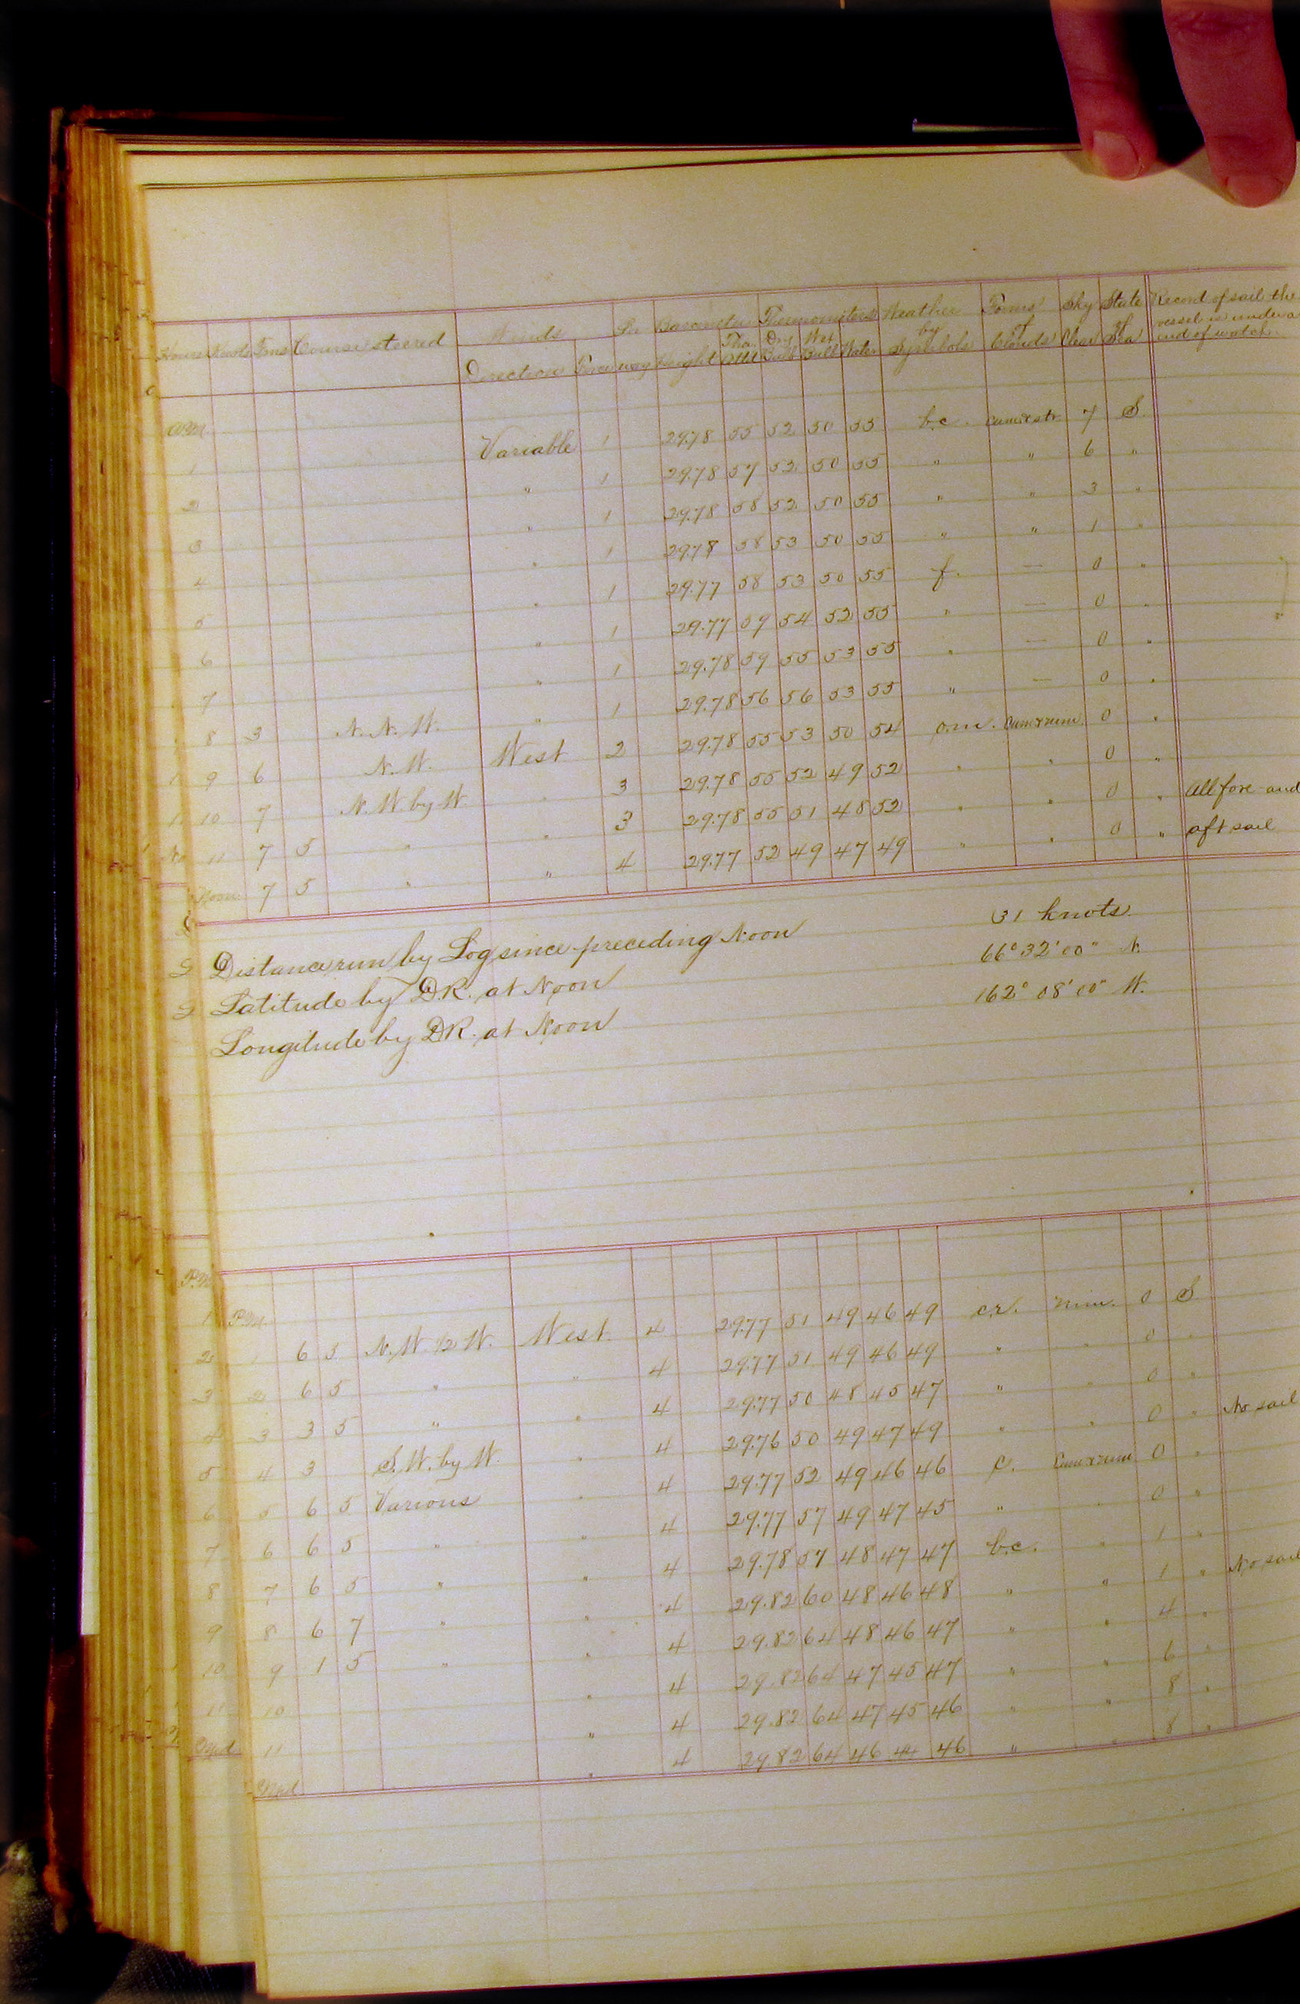 Hours Knots Fms Course steered Winds Direction Force Barometer Height Ther. Att. Thermometers Dry Bulb Wet Bulb Water Weather by Symbols Forms of Clouds Sky Clear State of Sea Record of sail the vessel is under at end of watch
A.M.
1 Variable 1 29.78 55 52 50 55 b.c. cum & str. 7 S
2 " 1 29.78 57 52 50 55 " " 6 "
3 " 1 29.78 58 52 50 55 " " 3 "
4 " 1 29.78 58 53 50 55 " " 1 "
5 " 1 29.77 58 53 50 55 f. — 0 "
6 " 1 29.77 59 54 52 55 " — 0 "
7 " 1 29.78 59 55 53 55 " — 0 "
8 3 N.N.W. " 1 29.78 56 56 53 55 " — 0 "
9 6 N.W. West 2 29.78 55 53 50 54 o.m. cum & nim 0 "
10 7 N.W. by W " 3 29.78 55 52 49 52 " " 0 "
11 7 5 " " 3 29.78 55 51 48 52 " " 0 " All fore and
Noon 7 5 " " 4 29.77 52 49 47 49 " " 0 " aft sail
Distance run by Log since preceding Noon 31 knots.
Latitude by D.R. at Noon 66° 32' 00" N.
Longitude by D.R. at Noon 162° 08' 00" W.
P.M.
1 6 5 N.W. 1/2 W. West 4 29.77 51 49 46 49 c.r. nim. 0 S
2 6 5 " " 4 29.77 51 49 46 49 " " 0 "
3 3 5 " " 4 29.77 50 48 45 47 " " 0 "
4 3 S.W. by W. " 4 29.76 50 49 47 49 " " 0 " No sail
5 6 5 Various " 4 29.77 52 49 46 46 c. cum & nim 0 "
6 6 5 " " 4 29.77 57 49 47 45 " " 0 "
7 6 5 " " 4 29.78 57 48 47 47 b.c. " 1 "
8 6 7 " " 4 29.82 60 48 46 48 " " 1 " No sail
9 1 5 " " 4 29.82 64 48 46 47 " " 4 "
10 " 4 29.82 64 47 45 47 " " 6 "
11 " 4 29.82 64 47 45 46 " " 8 "
Mid. " 4 29.82 64 46 44 46 " " 8 "